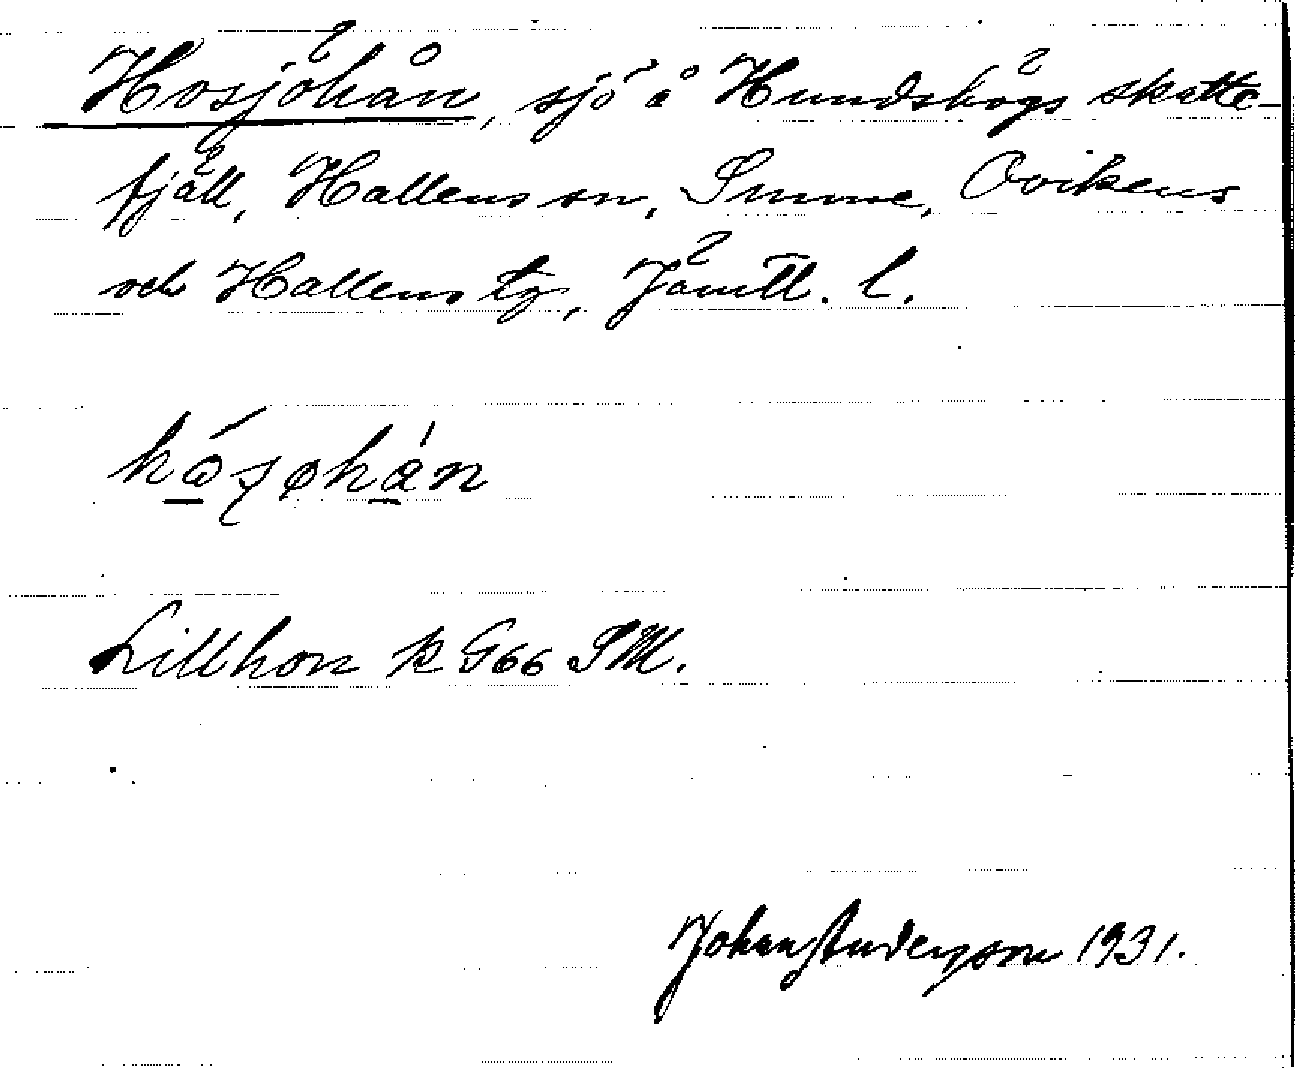 Hosjöhån, sjö å Hundshögs skatte-
fjäll, Hallens sn, Sunne, Ovikens
och Hallens tg, Jämtl. l.
Lillhon k G66 SM.
Johan Anderson 1931.